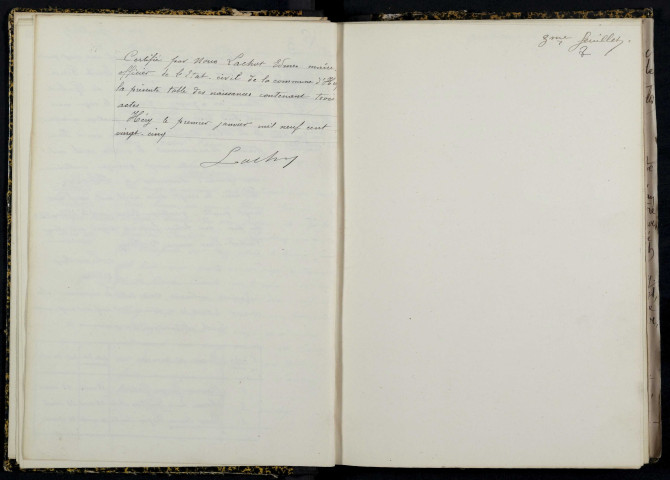 Certifiée par Nous Lachot Edmé maire
officier de l'Etat civil de la commune d'Héry
la présente table des naissances contenant trois
actes
Héry le premier janvier mil neuf cent
vingt-cinq
Lachot
3me feuillet